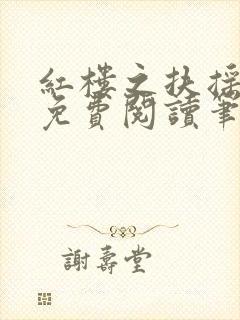 紅樓之扶搖
免費閱讀筆
謝壽堂